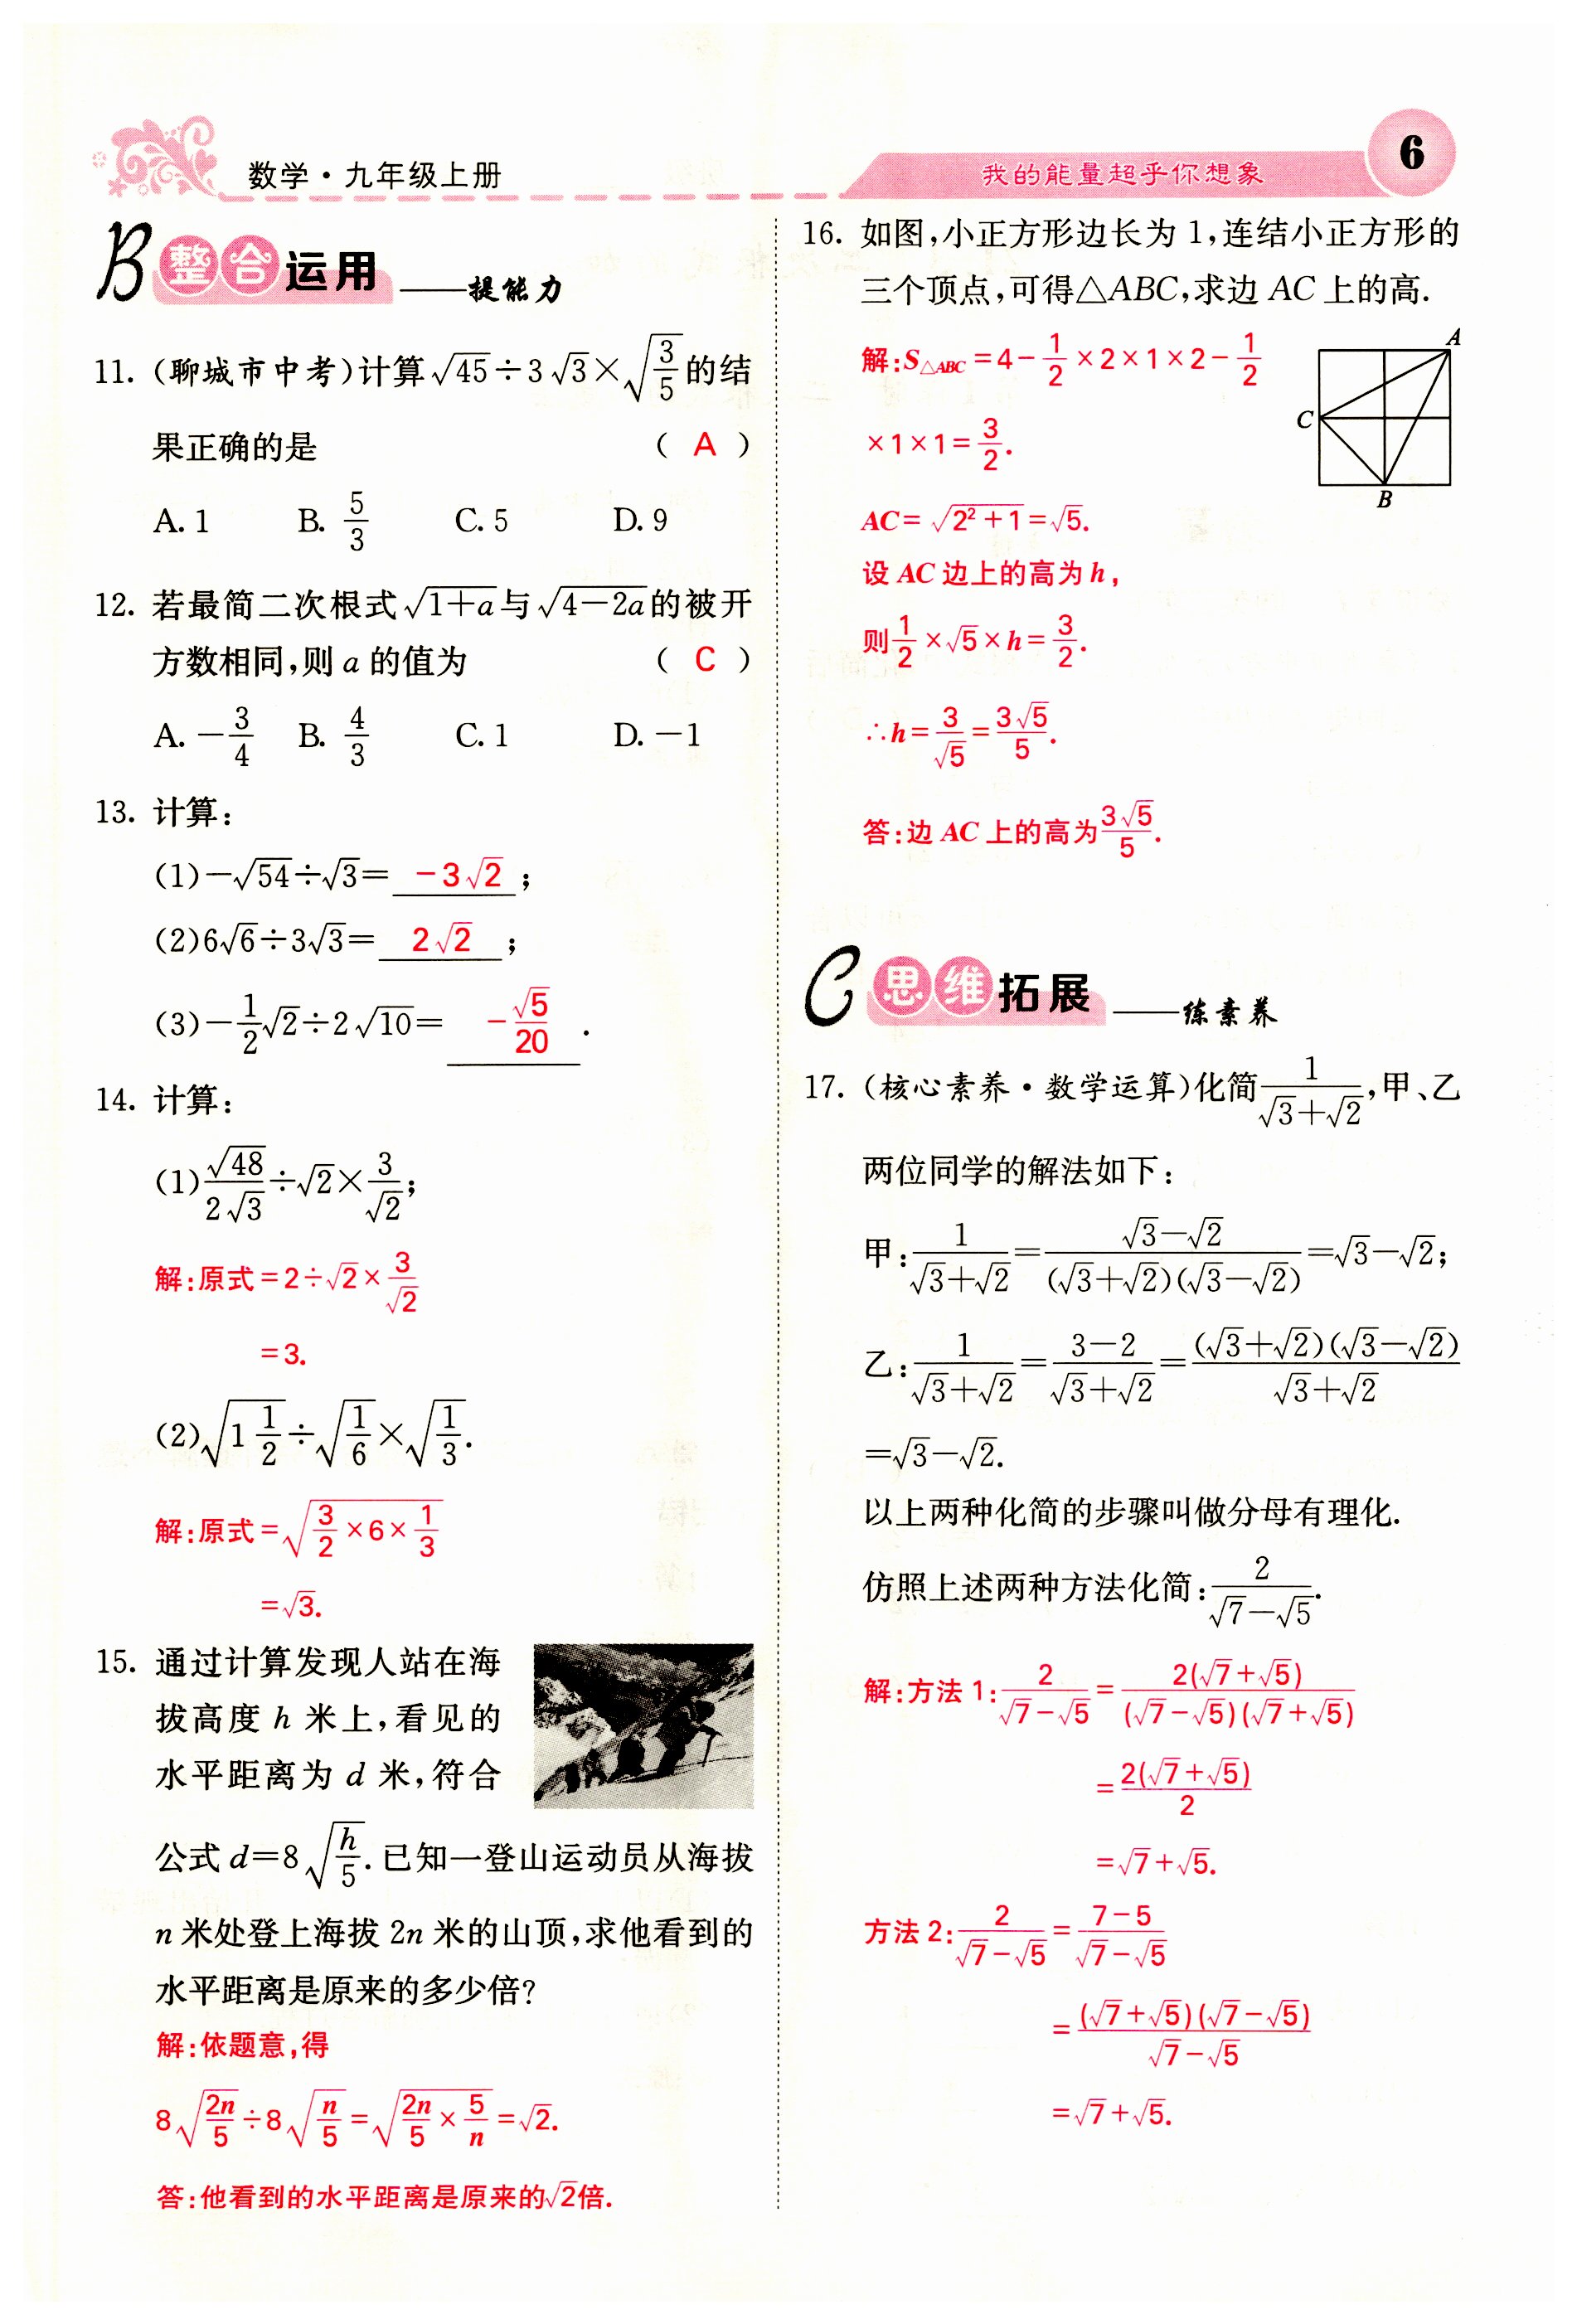 数学·九年级上册
我的能量超乎你想象
6
B 整合运用 ——提能力
11. (聊城市中考)计算√45÷3√3×√(3/5)的结
果正确的是 ( A )
A. 1 B. 5/3 C. 5 D. 9
12. 若最简二次根式√(1+a)与√(4-2a)的被开
方数相同,则 a 的值为 ( C )
A. -3/4 B. 4/3 C. 1 D. -1
13. 计算:
(1)-√54÷√3= -3√2 ;
(2)6√6÷3√3= 2√2 ;
(3)-1/2√2÷2√10= -√5/20 .
14. 计算:
(1)√48/(2√3)÷√2×3/√2;
解:原式=2÷√2×3/√2
=3.
(2)√(1 1/2)÷√(1/6)×√(1/3).
解:原式=√(3/2×6×1/3)
=√3.
15. 通过计算发现人站在海
拔高度 h 米上,看见的
水平距离为 d 米,符合
公式 d=8√(h/5).已知一登山运动员从海拔
n 米处登上海拔 2n 米的山顶,求他看到的
水平距离是原来的多少倍?
解:依题意,得
8√(2n/5)÷8√(n/5)=√(2n/5×5/n)=√2.
答:他看到的水平距离是原来的√2倍.
16. 如图,小正方形边长为 1,连结小正方形的
三个顶点,可得△ABC,求边 AC 上的高.
解:S△ABC=4-1/2×2×1×2-1/2
×1×1=3/2.
A
C
B
AC=√(2²+1)=√5.
设 AC 边上的高为 h,
则1/2×√5×h=3/2.
∴h=3/√5=3√5/5.
答:边 AC 上的高为3√5/5.
C 思维拓展 ——练素养
17. (核心素养·数学运算)化简1/(√3+√2),甲、乙
两位同学的解法如下:
甲:1/(√3+√2)=(√3-√2)/((√3+√2)(√3-√2))=√3-√2;
乙:1/(√3+√2)=(3-2)/(√3+√2)=((√3+√2)(√3-√2))/(√3+√2)
=√3-√2.
以上两种化简的步骤叫做分母有理化.
仿照上述两种方法化简:2/(√7-√5).
解:方法 1:2/(√7-√5)=2(√7+√5)/((√7-√5)(√7+√5))
=2(√7+√5)/2
=√7+√5.
方法 2:2/(√7-√5)=(7-5)/(√7-√5)
=((√7+√5)(√7-√5))/(√7-√5)
=√7+√5.